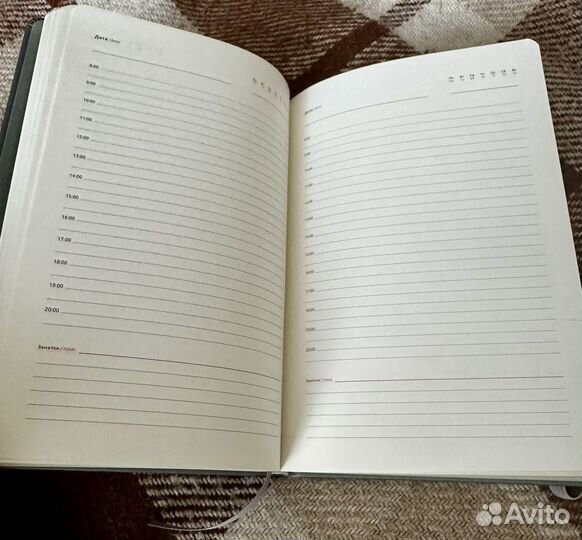 Дата / date
8:00
9:00
10:00
11:00
12:00
13:00
14:00
15:00
16:00
17:00
18:00
19:00
20:00
Заметки / notes
Дата / date
8:00
9:00
10:00
11:00
12:00
13:00
14:00
15:00
16:00
17:00
18:00
19:00
20:00
Заметки / notes
Avito